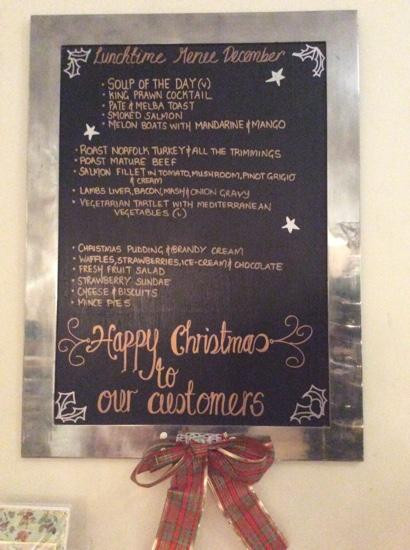 Lunchtime Menu December
• SOUP OF THE DAY (v)
• KING PRAWN COCKTAIL
• PATE & MELBA TOAST
• SMOKED SALMON
• MELON BOATS WITH MANDARINE & MANGO
• ROAST NORFOLK TURKEY & ALL THE TRIMMINGS
• ROAST MATURE BEEF
• SALMON FILLET IN TOMATO, MUSHROOM, PINOT GRIGIO
& CREAM
• LAMBS LIVER, BACON, MASH & ONION GRAVY
• VEGETARIAN TARTLET WITH MEDITERRANEAN
VEGETABLES (v)
• CHRISTMAS PUDDING & BRANDY CREAM
• WAFFLES, STRAWBERRIES, ICE-CREAM & CHOCOLATE
• FRESH FRUIT SALAD
• STRAWBERRY SUNDAE
• CHEESE & BISCUITS
• MINCE PIES
Happy Christmas
to
our customers